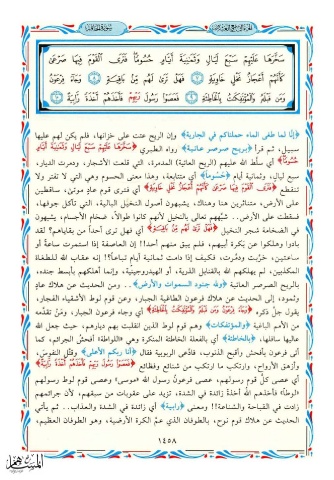 سَخَّرَهَا عَلَيْهِمْ سَبْعَ لَيَالٍ وَثَمَٰنِيَةَ أَيَّامٍ حُسُومًا فَتَرَى ٱلْقَوْمَ فِيهَا صَرْعَىٰ
كَأَنَّهُمْ أَعْجَازُ نَخْلٍ خَاوِيَةٍ ٧ فَهَلْ تَرَىٰ لَهُم مِّنۢ بَاقِيَةٍ ٨ وَجَآءَ فِرْعَوْنُ
وَمَن قَبْلَهُۥ وَٱلْمُؤْتَفِكَٰتُ بِٱلْخَاطِئَةِ ٩ فَعَصَوْا۟ رَسُولَ رَبِّهِمْ فَأَخَذَهُمْ أَخْذَةً رَّابِيَةً ١٠
﴿إنّا لما طغى الماء حملناكم في الجارية﴾ وإن الريح عتت على خزانها، فلم يكن لهم عليها
سبيل، ثم قرأ ﴿بريح صرصر عاتية﴾ رواه الطبري ﴿سَخَّرَهَا عَلَيْهِمْ سَبْعَ لَيَالٍ وَثَمَٰنِيَةَ أَيَّامٍ
حُسُومًا﴾ أي سلّط الله عليهم (الريح العاتية) المدمرة، التي قلعت الأشجار، ودمرت الديار،
سبع ليالٍ، وثمانية أيام ﴿حُسُوماً﴾ أي متتابعة، وهذا معنى الحسوم وهي التي لا تفتر ولا
تنقطع ﴿فَتَرَى ٱلْقَوْمَ فِيهَا صَرْعَىٰ كَأَنَّهُمْ أَعْجَازُ نَخْلٍ خَاوِيَةٍ﴾ أي فترى قوم عادٍ موتى، ساقطين
على الأرض، متناثرين هنا وهناك، يشبهون أصول النخيل البالية، التي تآكل جوفها،
فسقطت على الأرض.. شبّههم تعالى بالنخل لأنهم كانوا طوالاً، ضخام الأجسام، يشبهون
في الضخامة شجر النخيل ﴿فَهَلْ تَرَىٰ لَهُم مِّنۢ بَاقِيَةٍ﴾ أي فهل ترى أحداً من بقاياهم؟ لقد
بادوا وهلكوا عن بَكرة أبيهم، فلم يبق منهم أحد!! إن العاصفة إذا استمرت ساعةً أو
ساعتين، خرّبت ودمّرت، فكيف إذا دامت ثمانية أيام تباعاً؟! إنه عقاب الله للطغاة
المكذبين، لم يهلكهم الله بالقنابل الذرية، أو الهيدروجينية، وإنما أهلكهم بأبسط جنده،
بالريح الصرصر العاتية ﴿ولله جنود السموات والأرض﴾.. ومن الحديث عن هلاك عادٍ
وثمود، إلى الحديث عن هلاك فرعون الطاغية الجبار، وعن قوم لوط الأشقياء الفجار،
يقول جلّ ذكره ﴿وَجَآءَ فِرْعَوْنُ وَمَن قَبْلَهُۥ وَٱلْمُؤْتَفِكَٰتُ بِٱلْخَاطِئَةِ﴾ أي وجاء فرعون الجبار، ومَنْ تقدَّمه
من الأمم الباغية ﴿والمؤتفكات﴾ وهم قوم لوط الذين انقلبت بهم ديارهم، حيث جعل الله
عاليها سافلها، ﴿بالخاطئة﴾ أي بالفعلة الخاطئة المنكرة وهي «اللواطة» أفحشُ الجرائم، كما
أتى فرعون بأفحش وأقبح الذنوب، فادّعى الربوبية فقال ﴿أنا ربكم الأعلى﴾ وقتّل النفوسَ،
وأزهق الأرواح، وارتكب ما ارتكب من شنائع وفظائع ﴿فَعَصَوْا۟ رَسُولَ رَبِّهِمْ فَأَخَذَهُمْ أَخْذَةً رَّابِيَةً﴾
أي عصى كلُّ قوم رسولهم، عصى فرعونُ رسول الله «موسى» وعصى قوم لوط رسولهم
«لوطاً» فأخذهم الله أخذة زائدة في الشدة، تزيد على عقوبات من سبقهم، لأن جرائمهم
زادت في القباحة والشناعة!! ومعنى ﴿رابية﴾ أي زائدة في الشدة والعذاب.. ثم يأتي
الحديث عن هلاك قوم نوح، بالطوفان الذي عمّ الكرة الأرضية، وهو الطوفان العظيم،
١٤٥٨